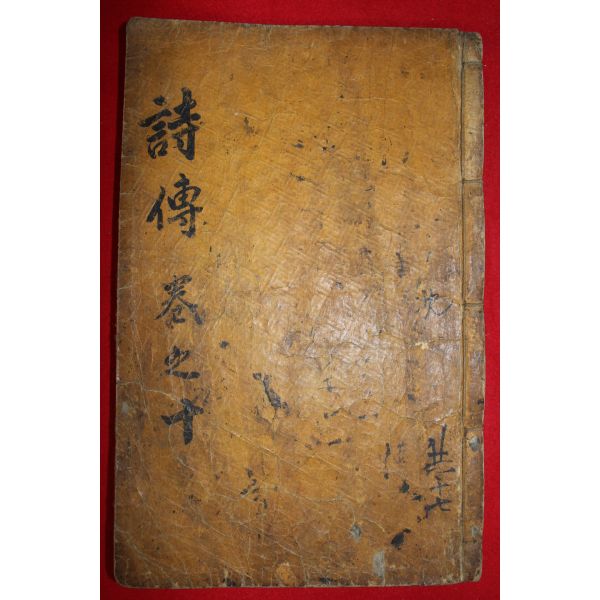 詩傳 卷之十
共十七